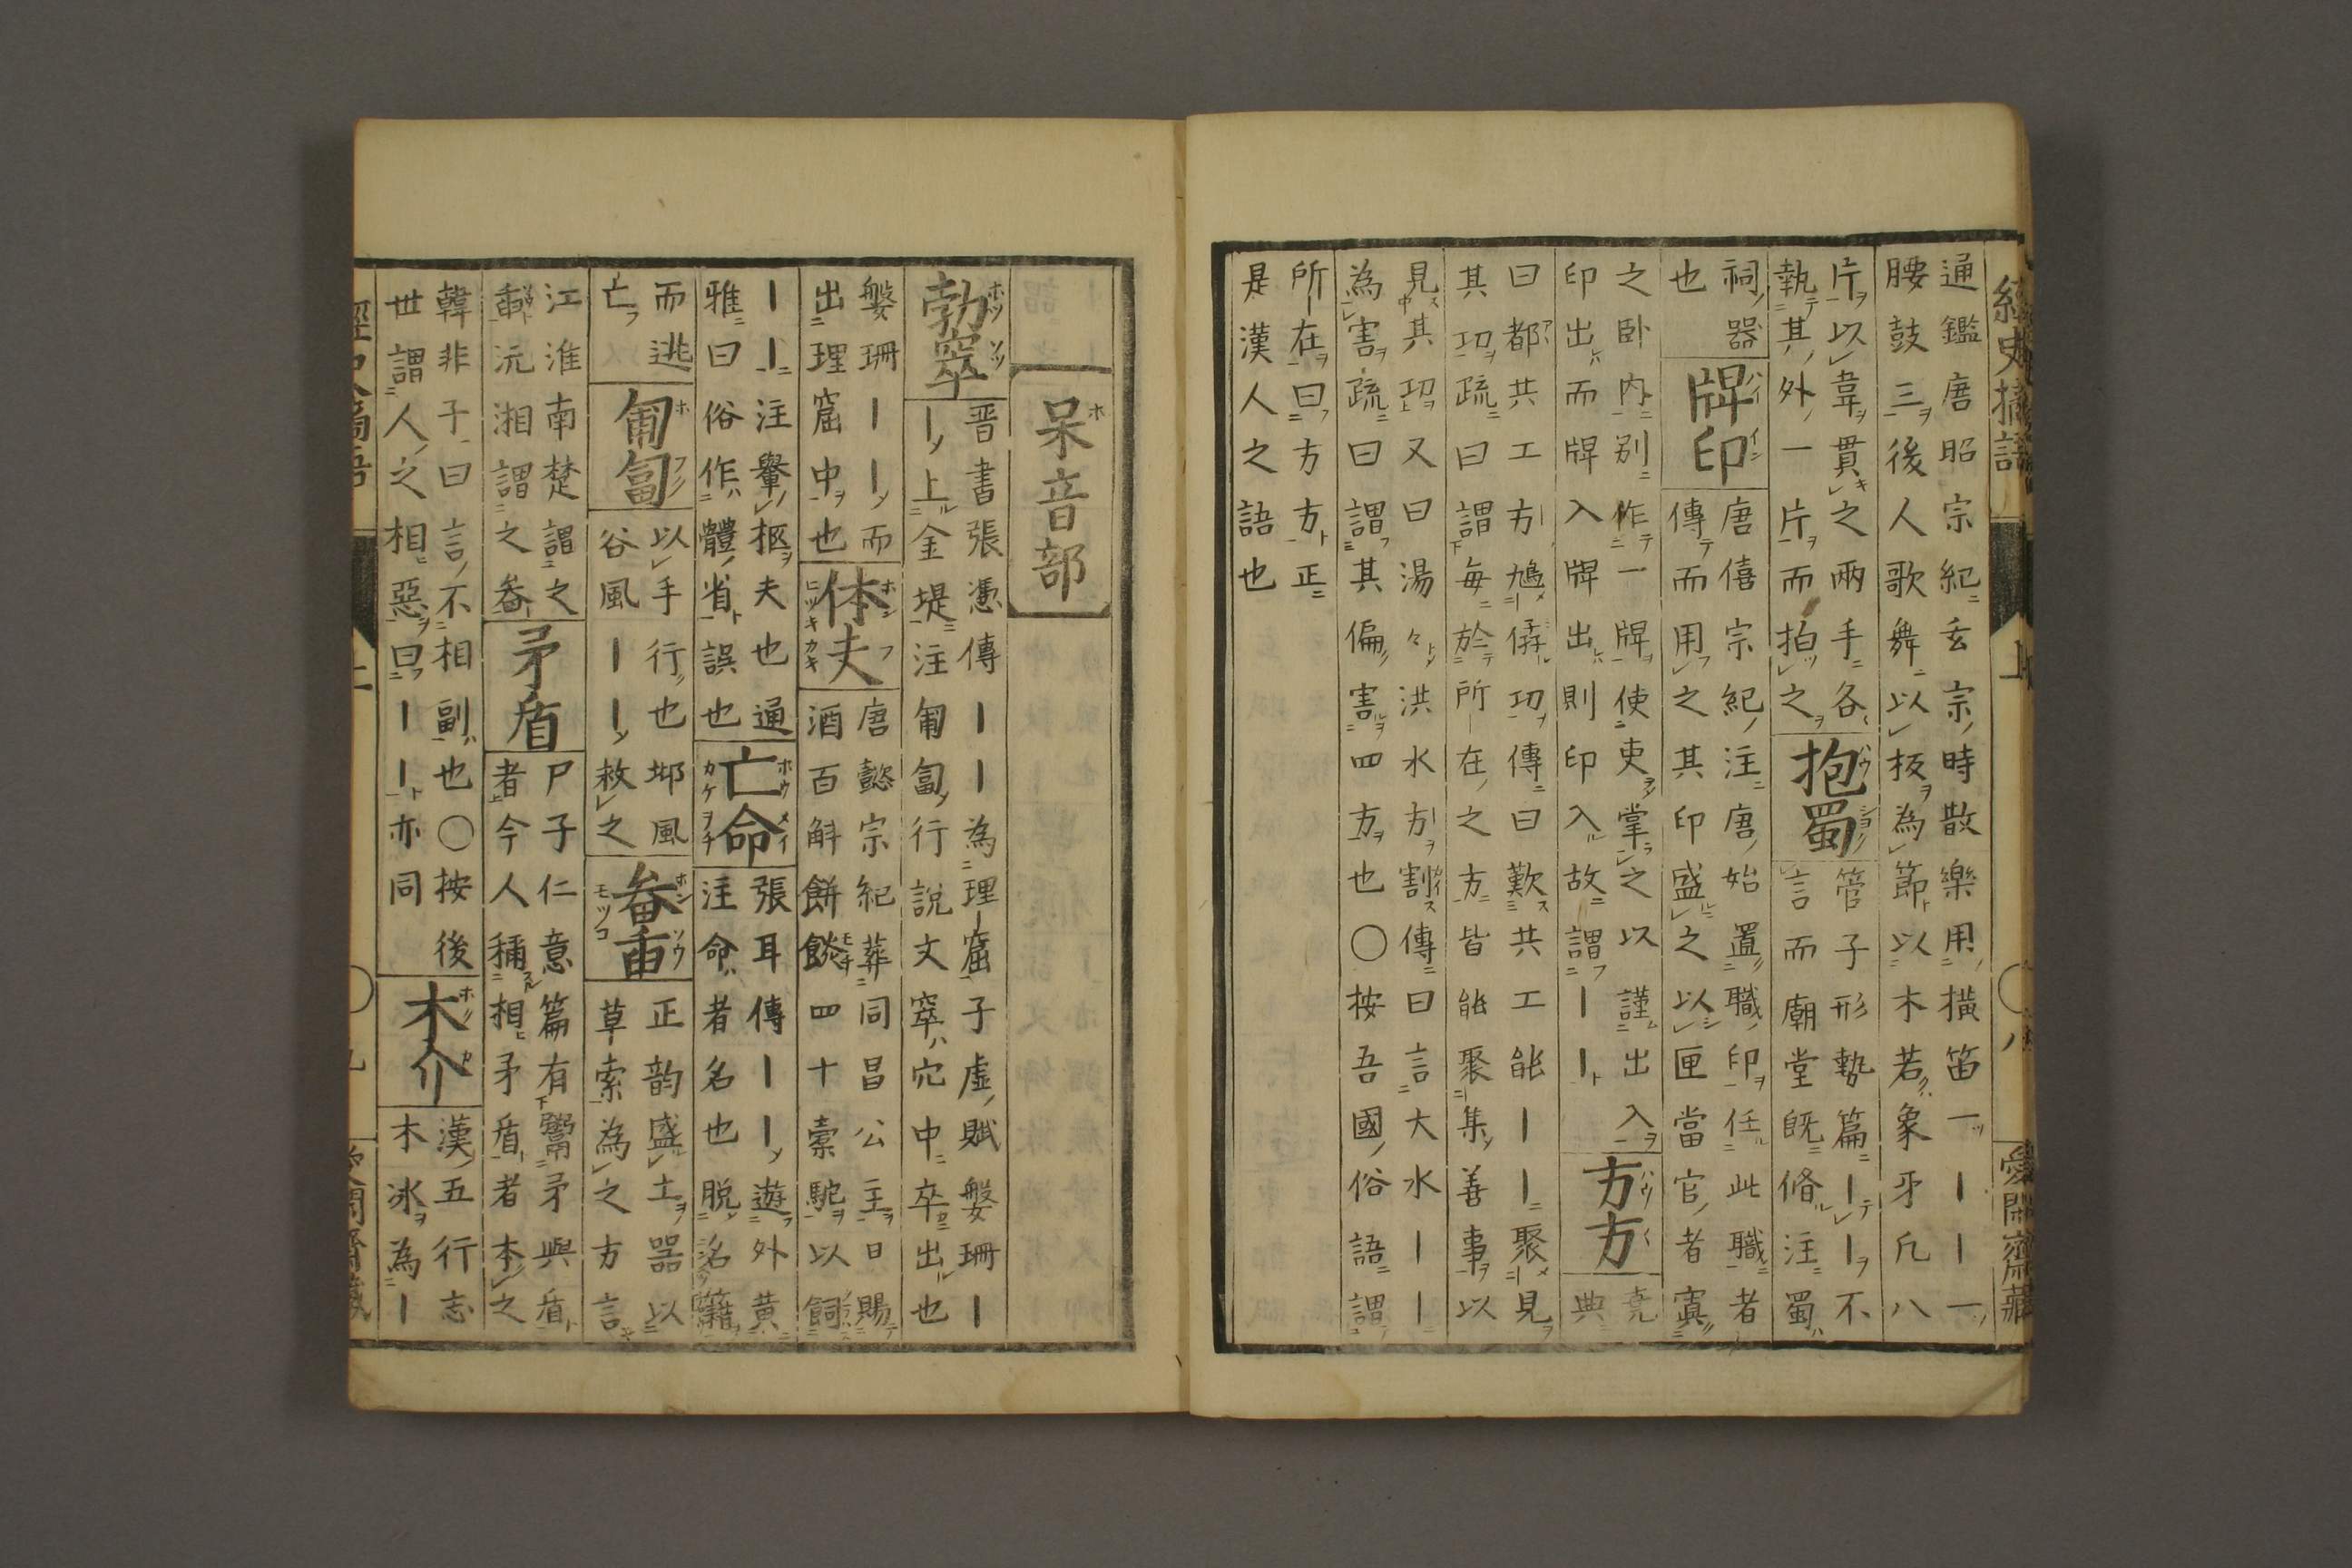 通鑑唐昭宗紀玄宗時散樂用橫笛一ーー一
腰鼓三後人歌舞以板為節以木若象牙凡八
片以韋貫之兩手各
執其外一片而拍之
抱蜀
管子形勢篇ーー不
言而廟堂既脩注蜀
祠器
也
牌印
唐僖宗紀注唐始置職印任此職者
傳而用之其印盛之以匣當官者寘
之卧内别作一牌使吏掌之以謹出入
印出而牌入牌出則印入故謂ーー
方方
堯
典
曰都共工方鳩僝功傳曰歎共工能ーー聚見
其功疏曰謂每於所在之方皆能聚集善事以
見其功又曰湯々洪水方割傳曰言大水ーー
為害疏曰謂其偏害四方也〇按吾國俗語謂
所在曰方方正
是漢人之語也
經史摘語
上
〇八
愛閑齋藏
呆音部
勃窣
晋書張憑傳ーー為理窟子虛賦媻珊ー
ー上金堤注匍匐行說文窣穴中卒出也
媻珊ーー而
出理窟中也
体夫
唐懿宗紀葬同昌公主日賜
酒百斛餅餤四十槖駝以飼
ーー注轝柩夫也通
雅曰俗作體省誤也
亡命
張耳傳ーー遊外黄
注命者名也脱名籍
而逃
亡
匍匐
以手行也邶風
谷風ーー救之
畚臿
正韵盛土器以
草索為之方言
江淮南楚謂之
臿沅湘謂之畚
矛盾
尸子仁意篇有鬻矛與盾
者今人稱相矛盾者本之
韓非子曰言不相副也〇按後
世謂人之相惡曰ーー亦同
木介
漢五行志
木冰為ー